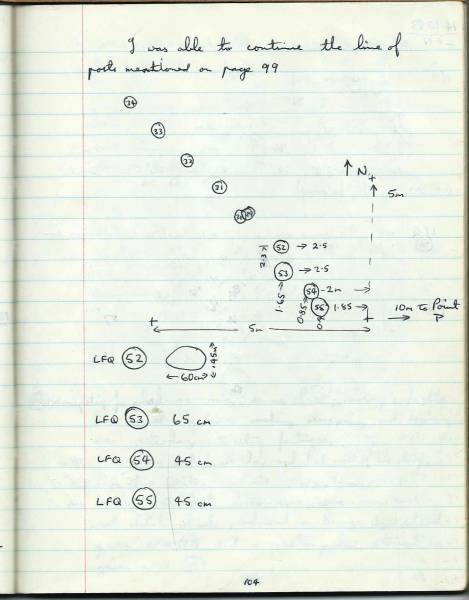 I was able to continue the line of
posts mentioned on page 99
34
33
32
31
↑ N
5m
52 → 2.5
2.3
53 → 2.5
1.65
54 - 2m →
0.85
55 1.85 →
10m to Point
P
5m
LFQ 52
.45m
60cm
LFQ 53 65 cm
LFQ 54 45 cm
LFQ 55 45 cm
104